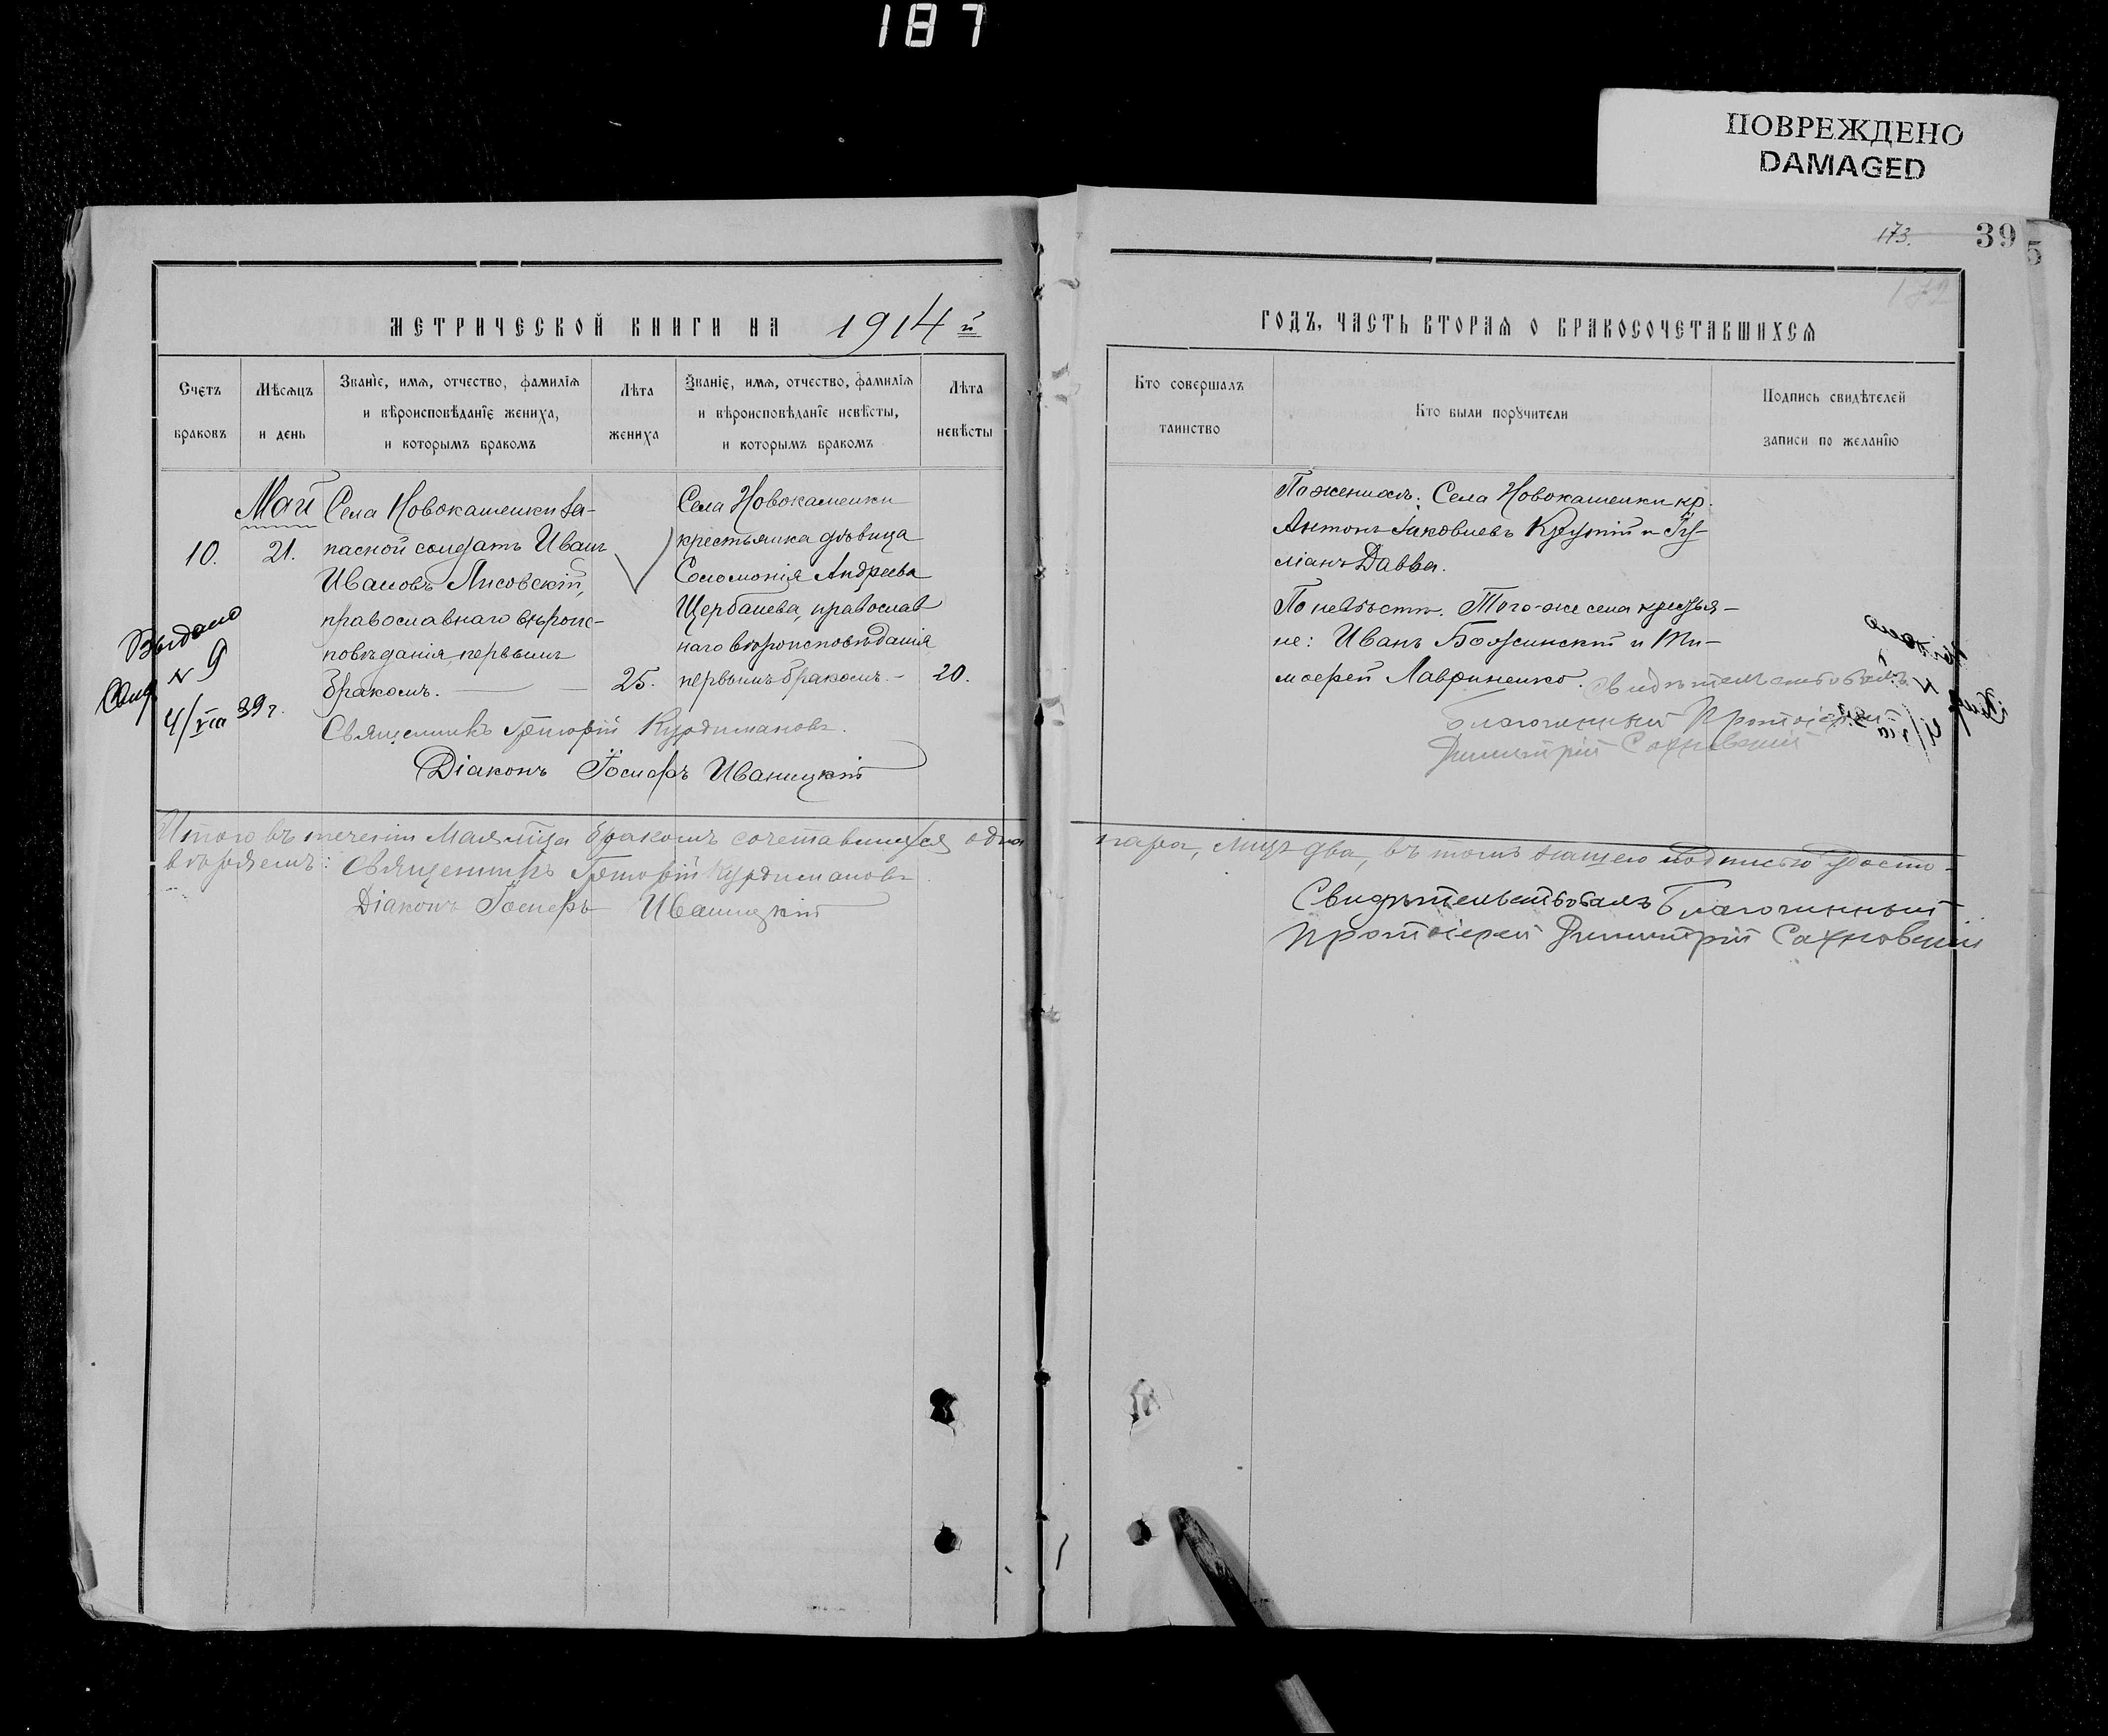 187
ПОВРЕЖДЕНО
DAMAGED
173.
39
5
МЕТРИЧЕСКОЙ КНИГИ НА 1914й
Счетъ браковъ
Мѣсяцъ и день
Званіе, имя, отчество, фамилія
и вѣроисповѣданіе жениха,
и которымъ бракомъ
Лѣта жениха
Званіе, имя, отчество, фамилія
и вѣроисповѣданіе невѣсты,
и которымъ бракомъ
Лѣта невѣсты
Май
10.
21.
Села Новокаменки за-
пасной солдатъ Иванъ
Ивановъ Лисовскій,
православнаго вѣроис-
повѣданія, первымъ
бракомъ.
25.
Села Новокаменки
крестьянка дѣвица
Соломонія Андреева
Щербанева, православ
наго вѣроисповѣданія
первымъ бракомъ. -
20.
Выдано
N 9
4/VIII 39 г.
Священникъ Григорій Курдимановъ.
Діаконъ Іосифъ Иваницкій
Итого въ теченіи Мая мѣца бракомъ сочетавшихся одна
вѣряемъ: Священникъ Григорій Курдимановъ.
Діаконъ Іосифъ Иваницкій
ГОДЪ, ЧАСТЬ ВТОРАЯ О БРАКОСОЧЕТАВШИХСЯ
Кто совершалъ таинство
Кто были поручители
Подпись свидѣтелей
записи по желанію
По женихѣ: Села Новокаменки кр.
Антонъ Іаковлевъ и Іу-
ліанъ Давва.
По невѣстѣ. Того-же села крестья-
не: Иванъ Божинскій и Ти-
мофей Лавриненко. Свидѣтельствовалъ
Благочинный Протоіерей
Димитрій Сахновскій
пара, лицъ два, въ томъ нашею подписью удосто-
Свидѣтельствовалъ Благочинный
Протоіерей Димитрій Сахновскій